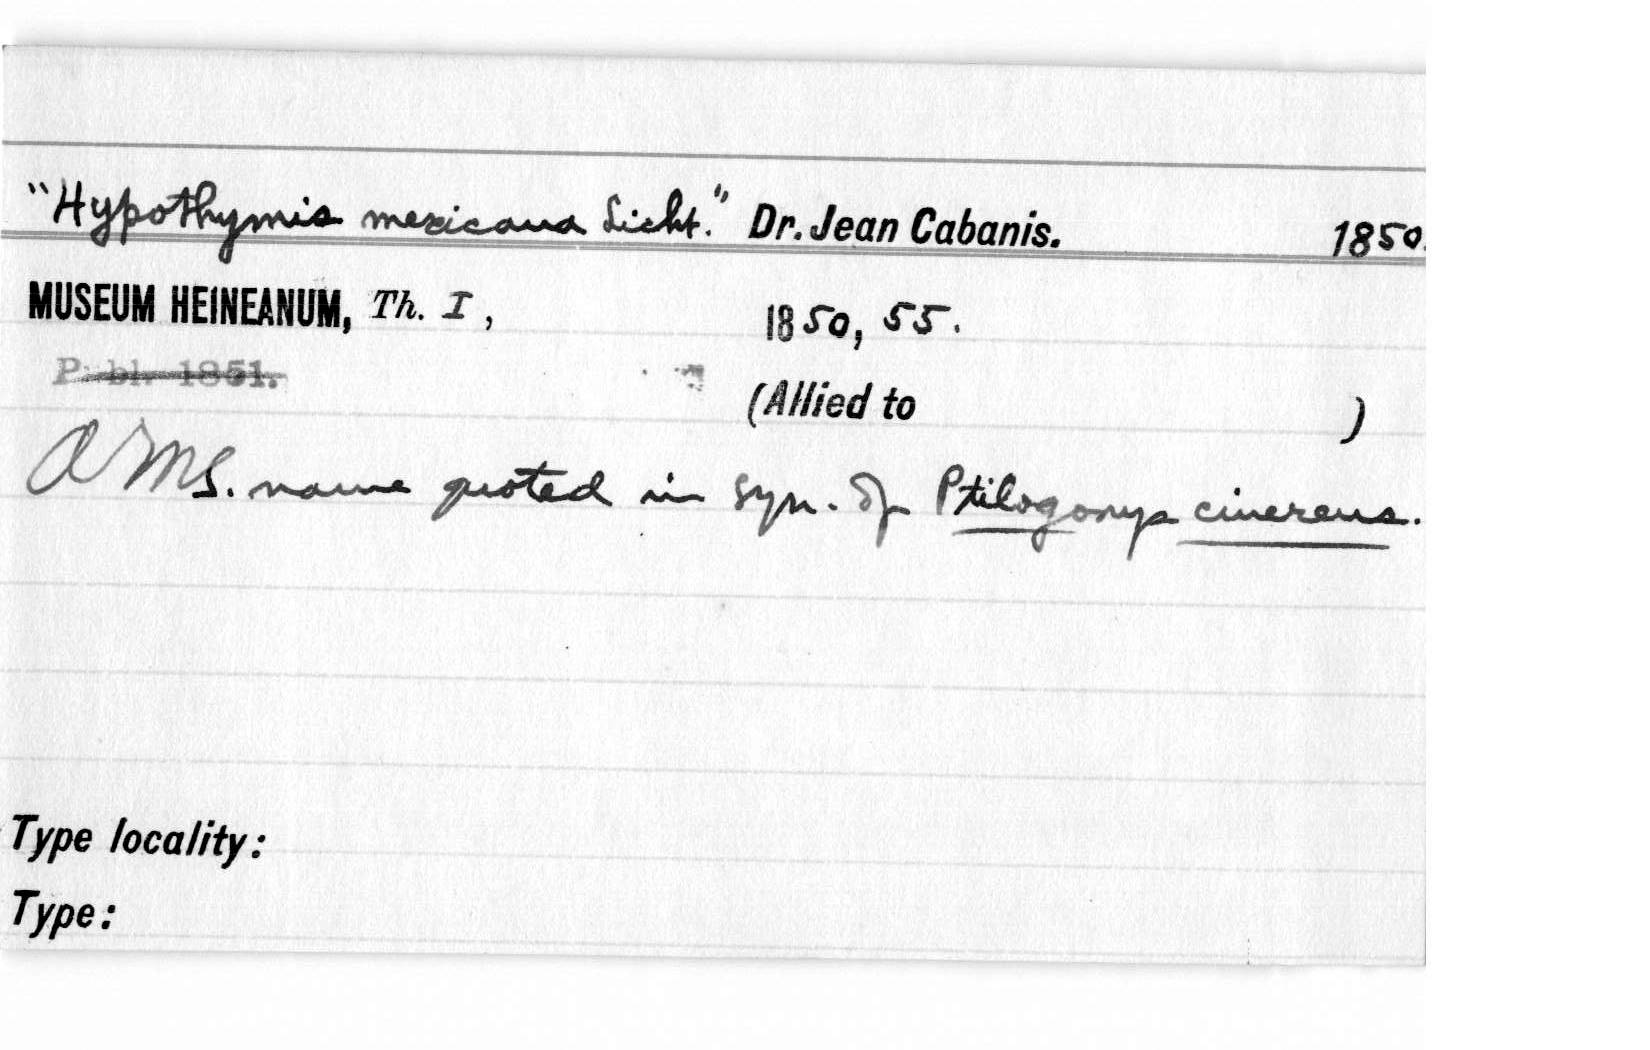 "Hypothymis mexicana Licht." Dr. Jean Cabanis. 1850.
MUSEUM HEINEANUM, Th. I, 1850, 55.
Publ. 1851.
(Allied to )
A MS. name quoted in syn. of Ptilogonys cinereus.
Type locality:
Type: